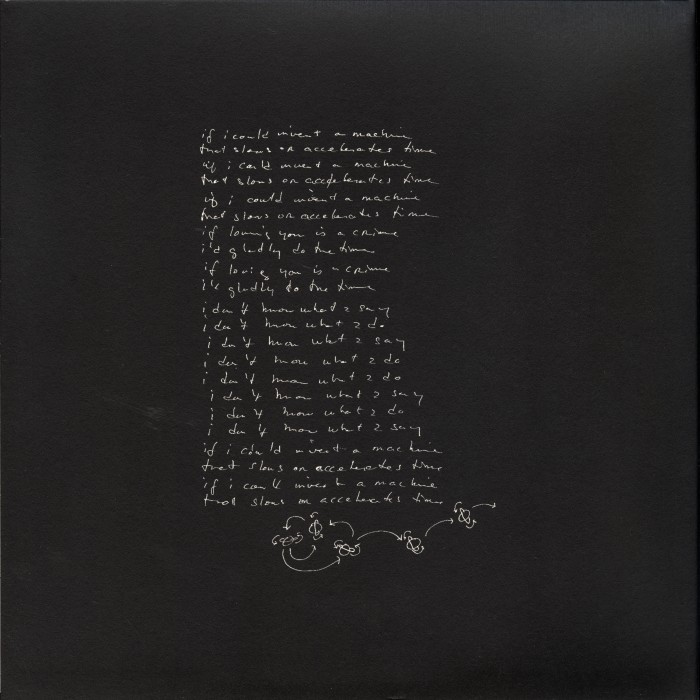 if i could invent a machine
that slows or accelerates time
if i could invent a machine
that slows or accelerates time
if i could invent a machine
that slows or accelerates time
if loving you is a crime
i'd gladly do the time
if loving you is a crime
i'd gladly do the time
i don't know what 2 say
i don't know what 2 do
i don't know what 2 say
i don't know what 2 do
i don't know what 2 do
i don't know what 2 say
i don't know what 2 do
i don't know what 2 say
if i could invent a machine
that slows or accelerates time
if i could invent a machine
that slows or accelerates time